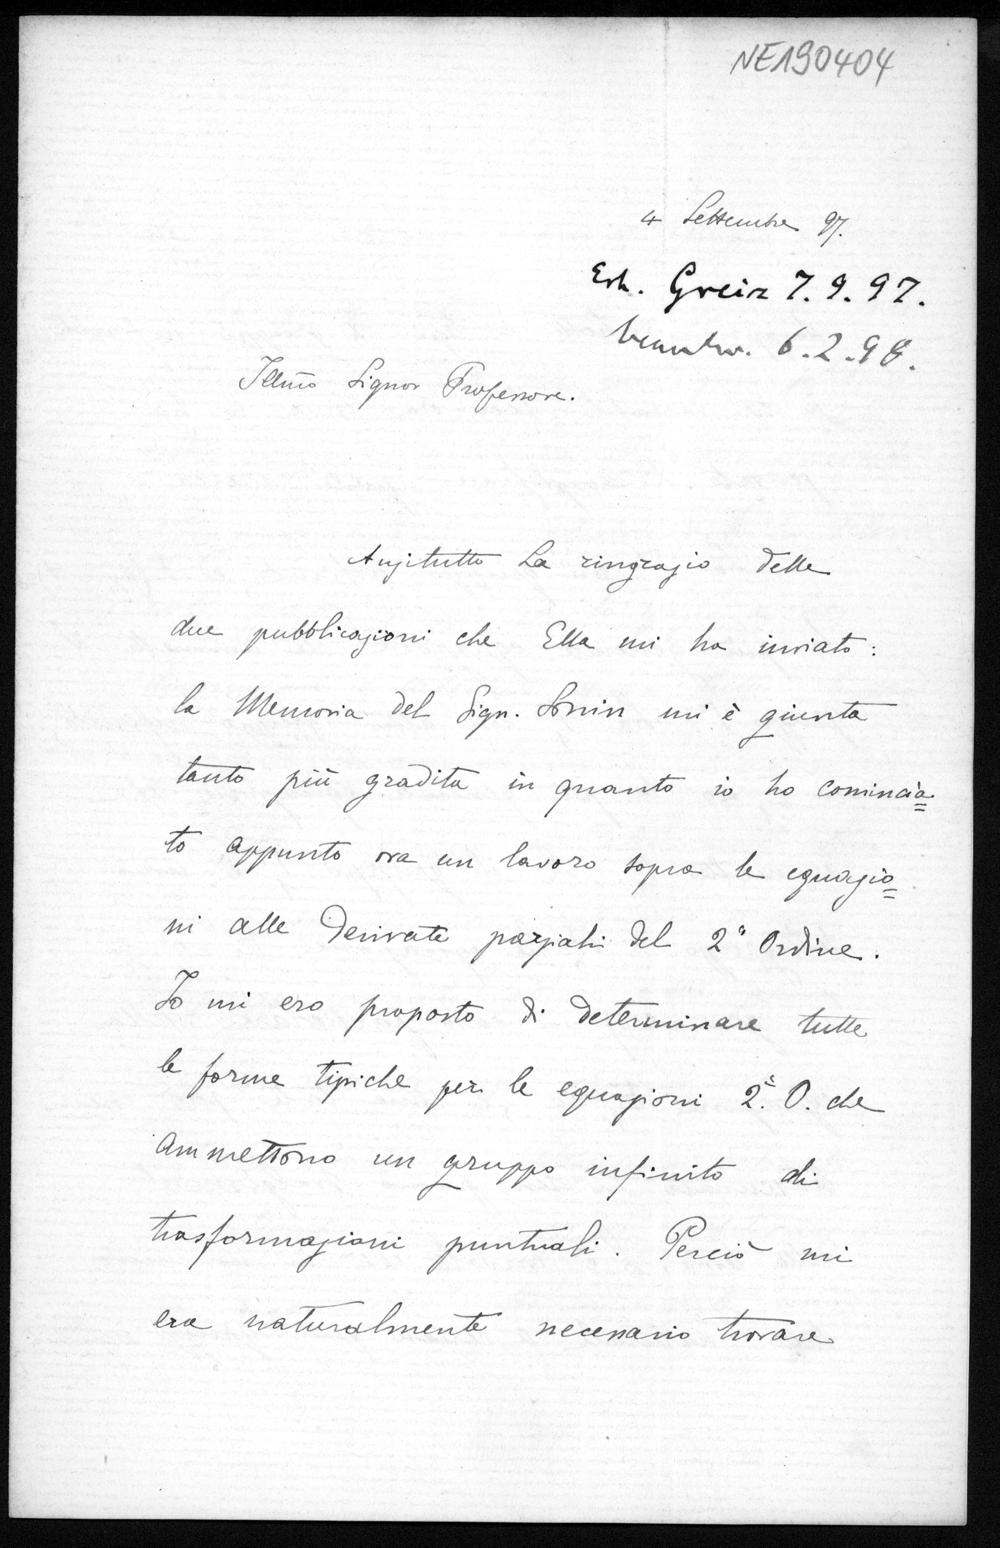 NE190404
4 Settembre 97.
Erh. Greiz 7.9.97.
beantw. 6.2.98.
Illm̃o Signor Professore.
Anzitutto La ringrazio delle
due pubblicazioni che Ella mi ha inviato:
la Memoria del Sign. Sonin mi è giunta
tanto più gradita in quanto io ho comincia=
to appunto ora un lavoro sopra le equazio=
ni alle derivate parziali del 2° Ordine.
Io mi ero proposto di determinare tutte
le forme tipiche per le equazioni 2°. O. che
ammettono un gruppo infinito di
trasformazioni puntuali. Perciò mi
era naturalmente necessario trovare